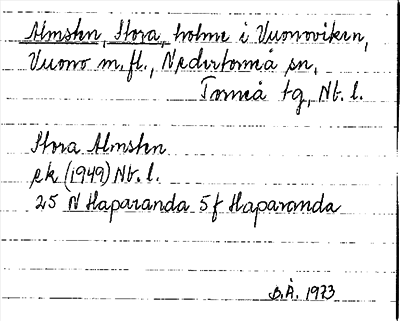 Almsten, Stora, holme i Vuonoviken,
Vuono m.fl., Nedertorneå sn,
Torneå tg, Nb. l.
Stora Almsten
ek (1949) Nb. l.
25 N Haparanda 5f Haparanda
B.Å. 1973